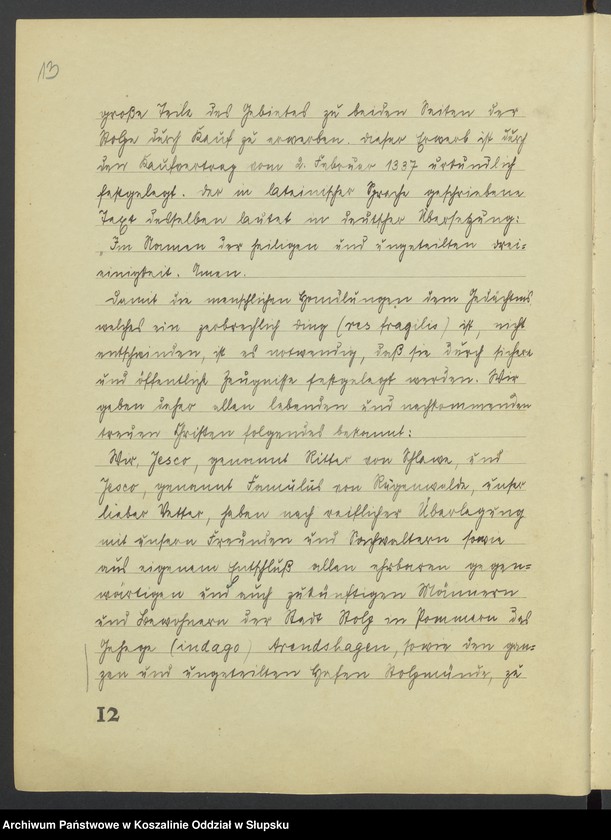 13
große Teile des Gebietes zu beiden Seiten der
Stolpe durch Kauf zu erwerben. Dieser Erwerb ist durch
den Kaufvertrag vom 2. Februar 1337 urkundlich
festgelegt. Der in lateinischer Sprache geschriebene
Text desselben lautet in deutscher Übersetzung:
„Im Namen der heiligen und ungeteilten Drei-
einigkeit. Amen.
Damit die menschlichen Handlungen dem Gedächtnis
welches ein zerbrechlich Ding (res fragilis) ist, nicht
entschwinden, ist es notwendig, daß sie durch sichere
und öffentliche Zeugnisse festgelegt werden. Wir
geben daher allen lebenden und nachkommenden
treuen Christen folgendes bekannt:
Wir, Jesco, genannt Ritter von Schlawe, und
Jesco, genannt Famulus von Rügenwalde, unser
lieber Vetter, haben nach reiflicher Überlegung
mit unsern Freunden und Sachwaltern sowie
aus eigenem Entschluß allen ehrbaren gegen-
wärtigen und auch zukünftigen Männern
und Bewohnern der Stadt Stolp in Pommern das
Gehege (indago) Arendshagen, sowie den gan-
zen und ungeteilten Hafen Stolpmünde, zu
12
Archiwum Państwowe w Koszalinie Oddział w Słupsku